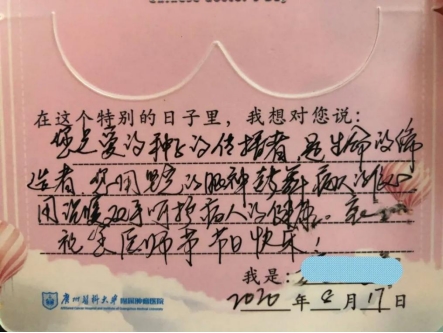 Chinese Doctor's Day
在这个特别的日子里，我想对您说：
您是爱的种子的传播者，是生命的缔
造者，您用坚定的眼神鼓舞病人的心，
用温暖双手呵护病人的健康。
祝 医师节 节日快乐！
我是：
广州医科大学 附属肿瘤医院
2020年8月17日